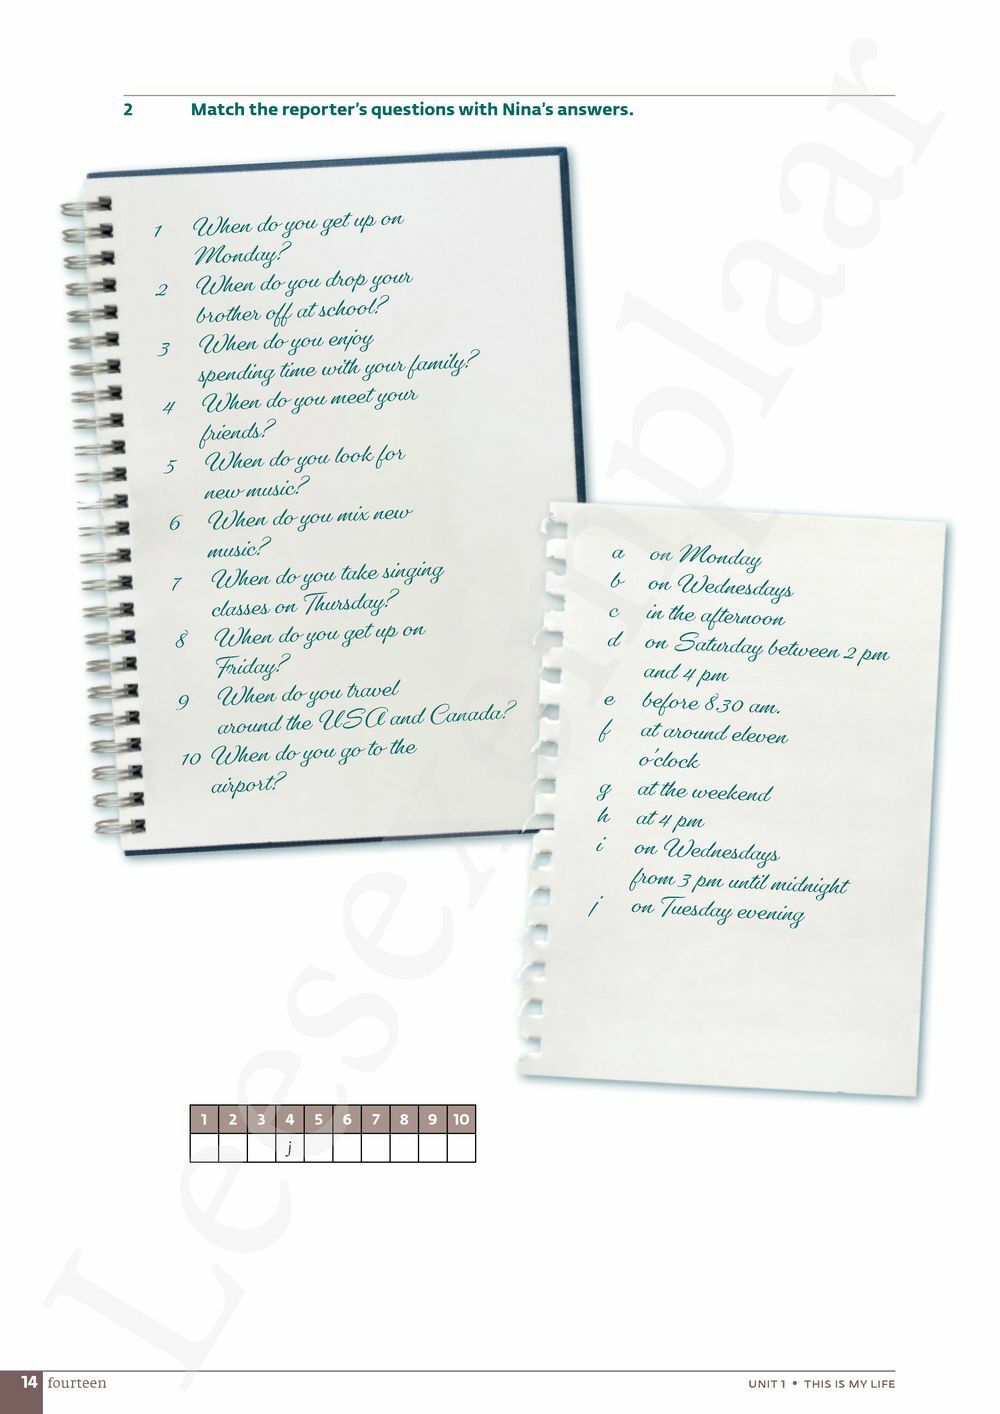 2 Match the reporter's questions with Nina's answers.
1 When do you get up on
Monday?
2 When do you drop your
brother off at school?
3 When do you enjoy
spending time with your family?
4 When do you meet your
friends?
5 When do you look for
new music?
6 When do you mix new
music?
7 When do you take singing
classes on Thursday?
8 When do you get up on
Friday?
9 When do you travel
around the USA and Canada?
10 When do you go to the
airport?
a on Monday
b on Wednesdays
c in the afternoon
d on Saturday between 2 pm
and 4 pm
e before 8.30 am.
f at around eleven
o'clock
g at the weekend
h at 4 pm
i on Wednesdays
from 3 pm until midnight
j on Tuesday evening
1 2 3 4 5 6 7 8 9 10
j
14 fourteen
UNIT 1 • THIS IS MY LIFE
Leesexemplaar